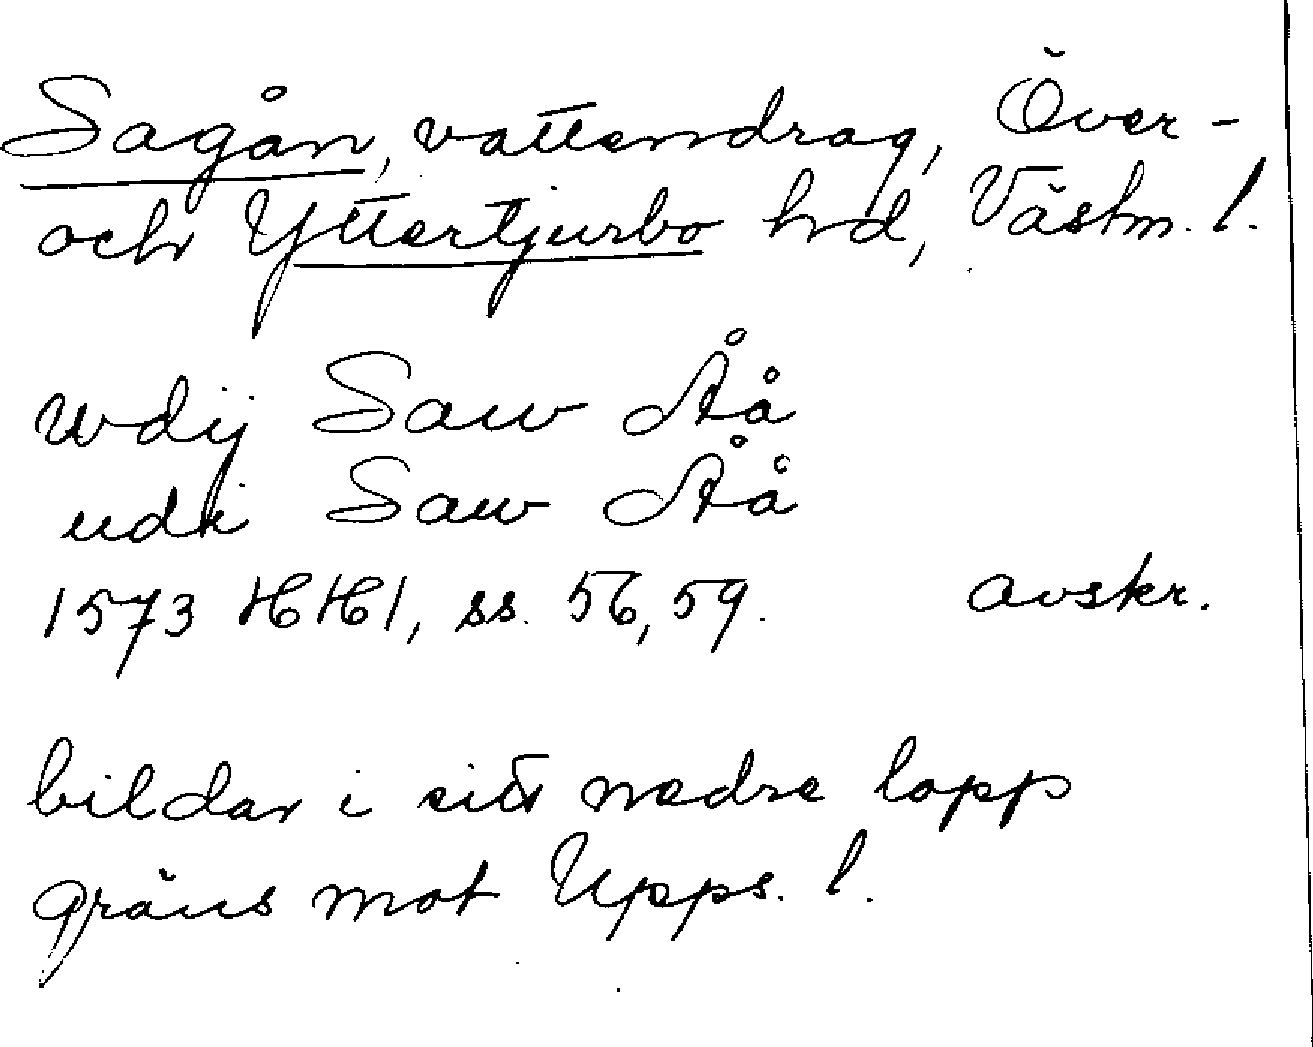 Sagån, vattendrag, Över-
och Yttertjurbo hd, Västm. l.
wdij Saw Åå
udi Saw Åå
1573 HH1, ss. 56, 59. avskr.
bildar i sitt nedre lopp
gräns mot Upps. l.